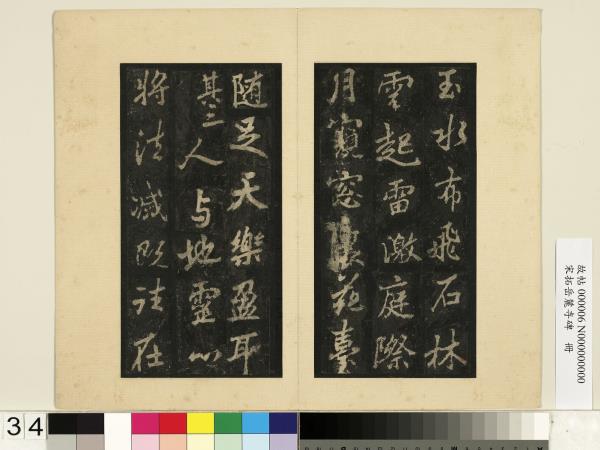 玉水布飛石林
雲起雷激庭際
月窺窓裏花臺
随足天樂盈耳
其三 人与地靈心
將法滅既在
故帖 000006 N000000000
宋拓岳麓寺碑 冊
34